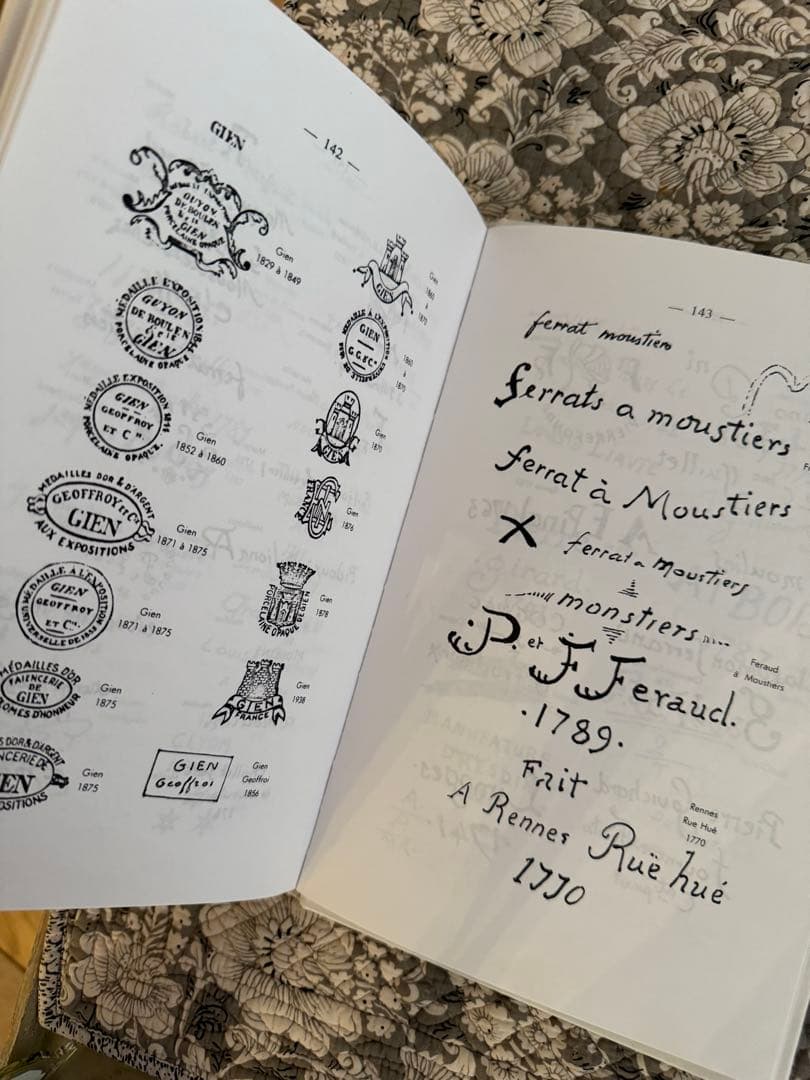 — 142 —
GIEN
GUYON
DE BOULEN
& Cie
GIEN
PORCELAINE OPAQUE
Gien
1829 à 1849
MÉDAILLE EXPOSITION 1844
GUYON
DE BOULEN
& Cie
GIEN
PORCELAINE OPAQUE
MÉDAILLE EXPOSITION
GIEN
GEOFFROY
ET Cie
PORCELAINE OPAQUE.
Gien
1852 à 1860
MEDAILLES D'OR & D'ARGENT
GEOFFROY et Cie
GIEN
AUX EXPOSITIONS
Gien
1871 à 1875
MÉDAILLE À L'EXPOSITION
GIEN
GEOFFROY
ET Cie
UNIVERSELLE DE
Gien
1871 à 1875
MÉDAILLES D'OR
FAIENCERIE
DE
GIEN
D'HONNEUR
Gien
1875
D'OR & D'ARGENT
DE
EN
Gien
1875
GIEN
Gien
1860
à
1870
GIEN
G.G.ET Cie
1860
à
1870
GIEN
Gien
1870
FRANCE
Gien
1876
PORCELAINE OPAQUE DE GIEN
Gien
1878
GIEN
FRANCE
Gien
1938
GIEN
Geoffroi
Gien
Geoffroi
1856
— 143 —
ferrat moustiers
ferrats a moustiers
ferrat à Moustiers
X
ferrat a Moustiers
monstiers
P. et F Feraud.
Feraud
à Moustiers
.1789.
Fait
A Rennes Ruë hué
1770
Rennes
Rue Hué
1770